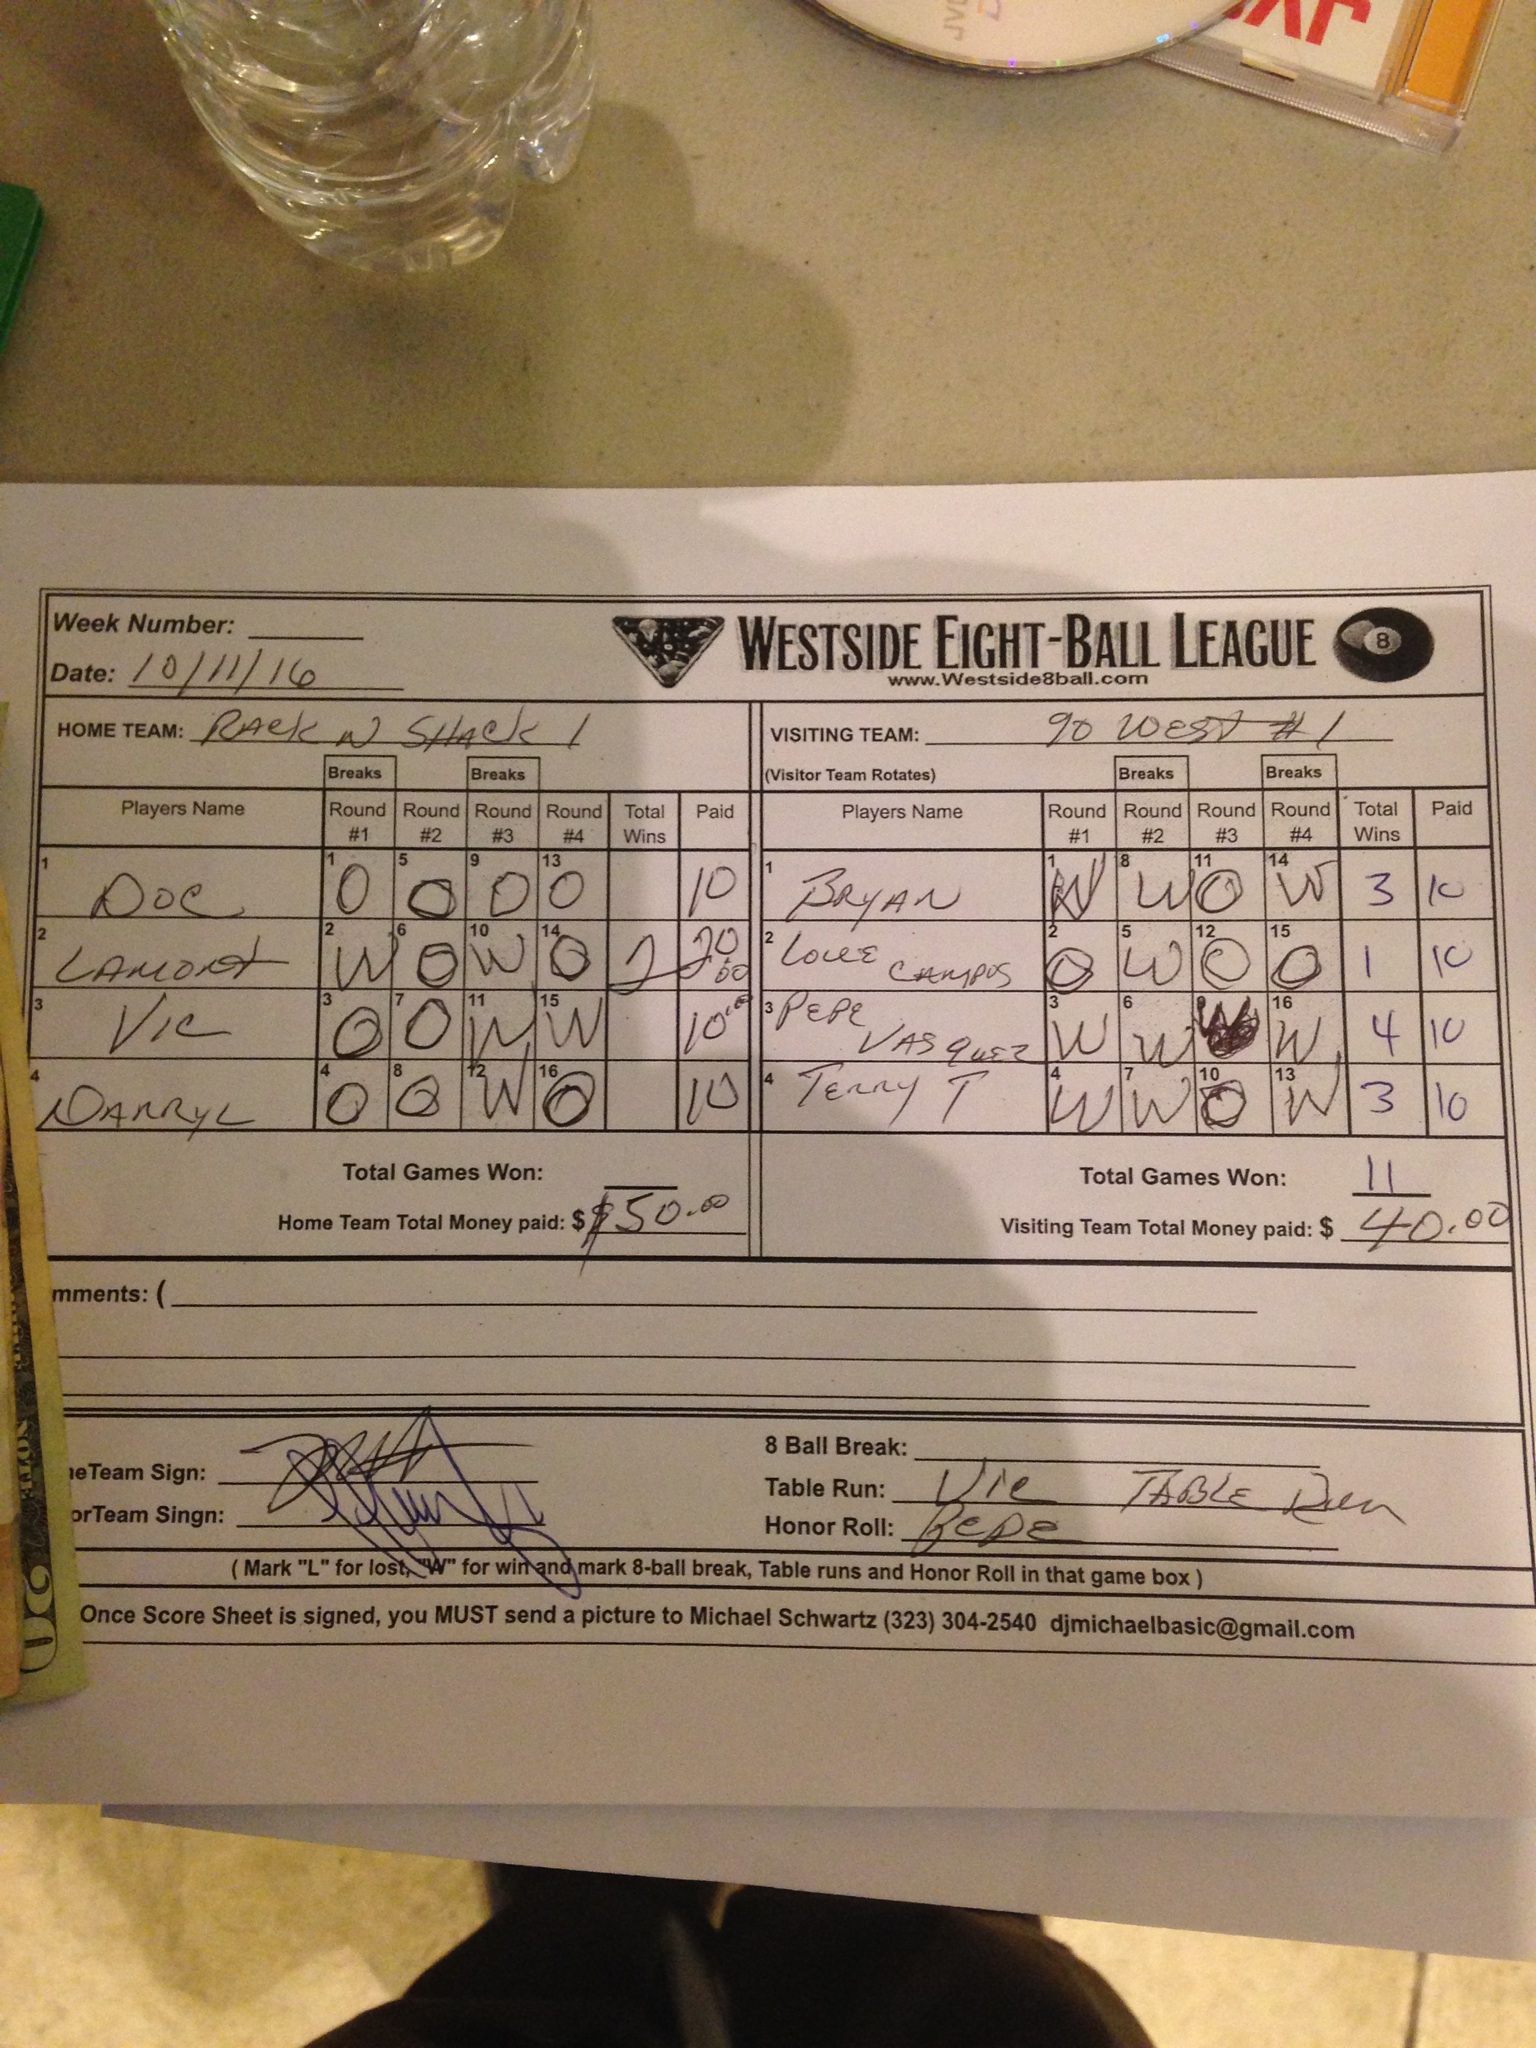 Week Number:
Date: 10/11/16
WESTSIDE EIGHT-BALL LEAGUE 8
www.Westside8ball.com
HOME TEAM: RACK N SHACK 1 VISITING TEAM: 90 WEST #1
(Visitor Team Rotates)
Breaks Breaks Breaks Breaks
Players Name Round #1 Round #2 Round #3 Round #4 Total Wins Paid Players Name Round #1 Round #2 Round #3 Round #4 Total Wins Paid
1 DOC 1 O 5 O 9 O 13 O 10 1 BRYAN 1 W 8 W 11 O 14 W 3 10
2 LAMONT 2 W 6 O 10 W 14 O 2 20.00 2 LOUE CAMPOS 2 O 5 W 12 O 15 O 1 10
3 VIC 3 O 7 O 11 W 15 W 10.00 3 PEPE VASQUEZ 3 W 6 W 9 W 16 W 4 10
4 DARRYL 4 O 8 O 12 W 16 O 10 4 TERRY T 4 W 7 W 10 O 13 W 3 10
Total Games Won: Total Games Won: 11
Home Team Total Money paid: $ $50.00 Visiting Team Total Money paid: $ 40.00
mments: (
eTeam Sign: 8 Ball Break:
orTeam Singn: Table Run: Vic TABLE Run
Honor Roll: PEPE
( Mark "L" for lost, "W" for win and mark 8-ball break, Table runs and Honor Roll in that game box )
Once Score Sheet is signed, you MUST send a picture to Michael Schwartz (323) 304-2540 djmichaelbasic@gmail.com
20